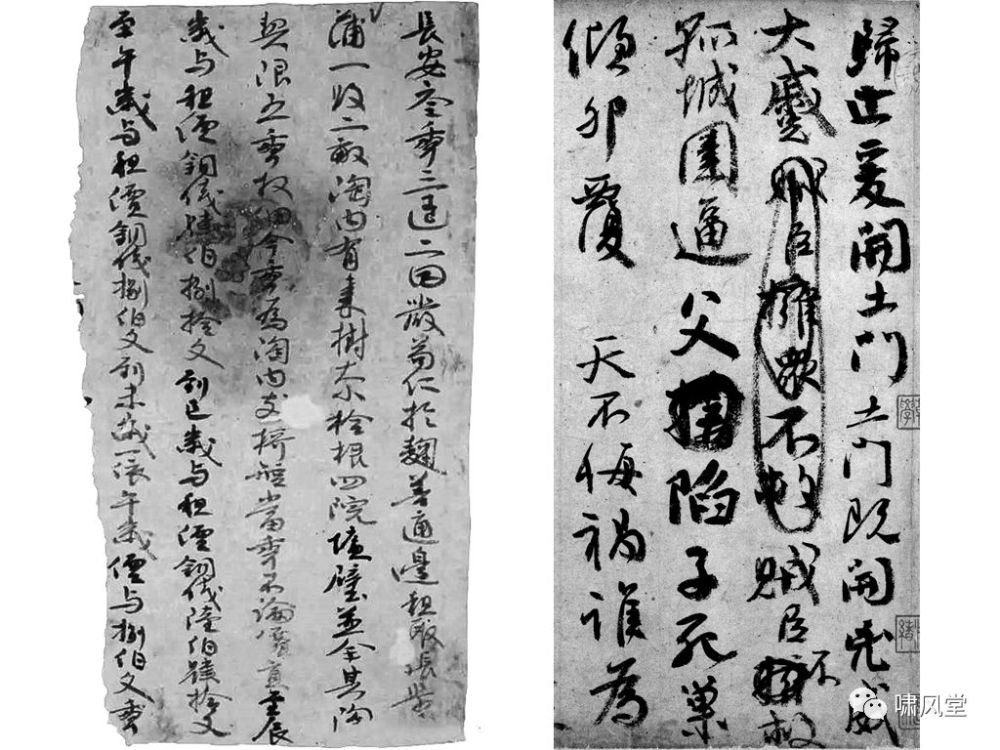 長安叁年三月二日嚴苟仁於麹善通邊租取張渠
蒲一段二畝淘内有棗樹大拾根四院墻壁並全其陶
契限五年收佃今年為淘内支橋短當年不論價直至辰
歲与租價銅錢肆伯捌拾文到巳歲与租價銅錢陸伯肆拾文
至午歲与租價銅錢捌伯文到未歲一依午歲價与捌伯文年
歸止爰開土門土門既開兇威
大蹙賊臣擁衆不救賊臣不救
孤城圍逼父陷子死巢
傾卵覆 天不悔禍誰為
啸风堂